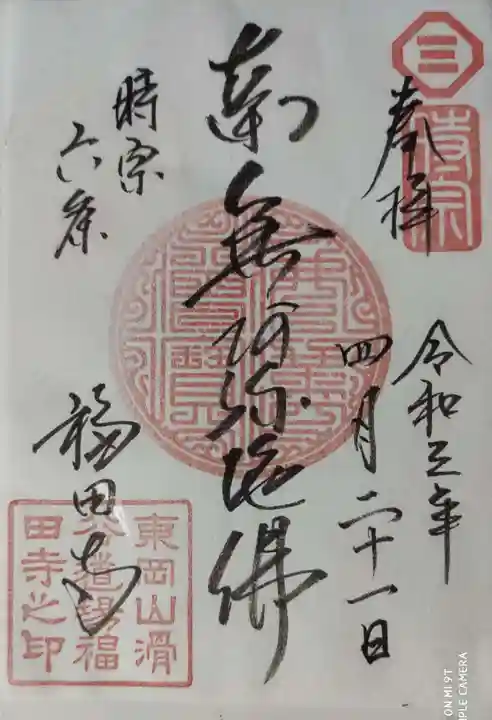 三
時宗
奉拝
令和三年
四月二十一日
南無阿弥陀佛
時宗
六条
福田寺
東岡山滑
福
田寺之印
ON MI 9T
PLE CAMERA